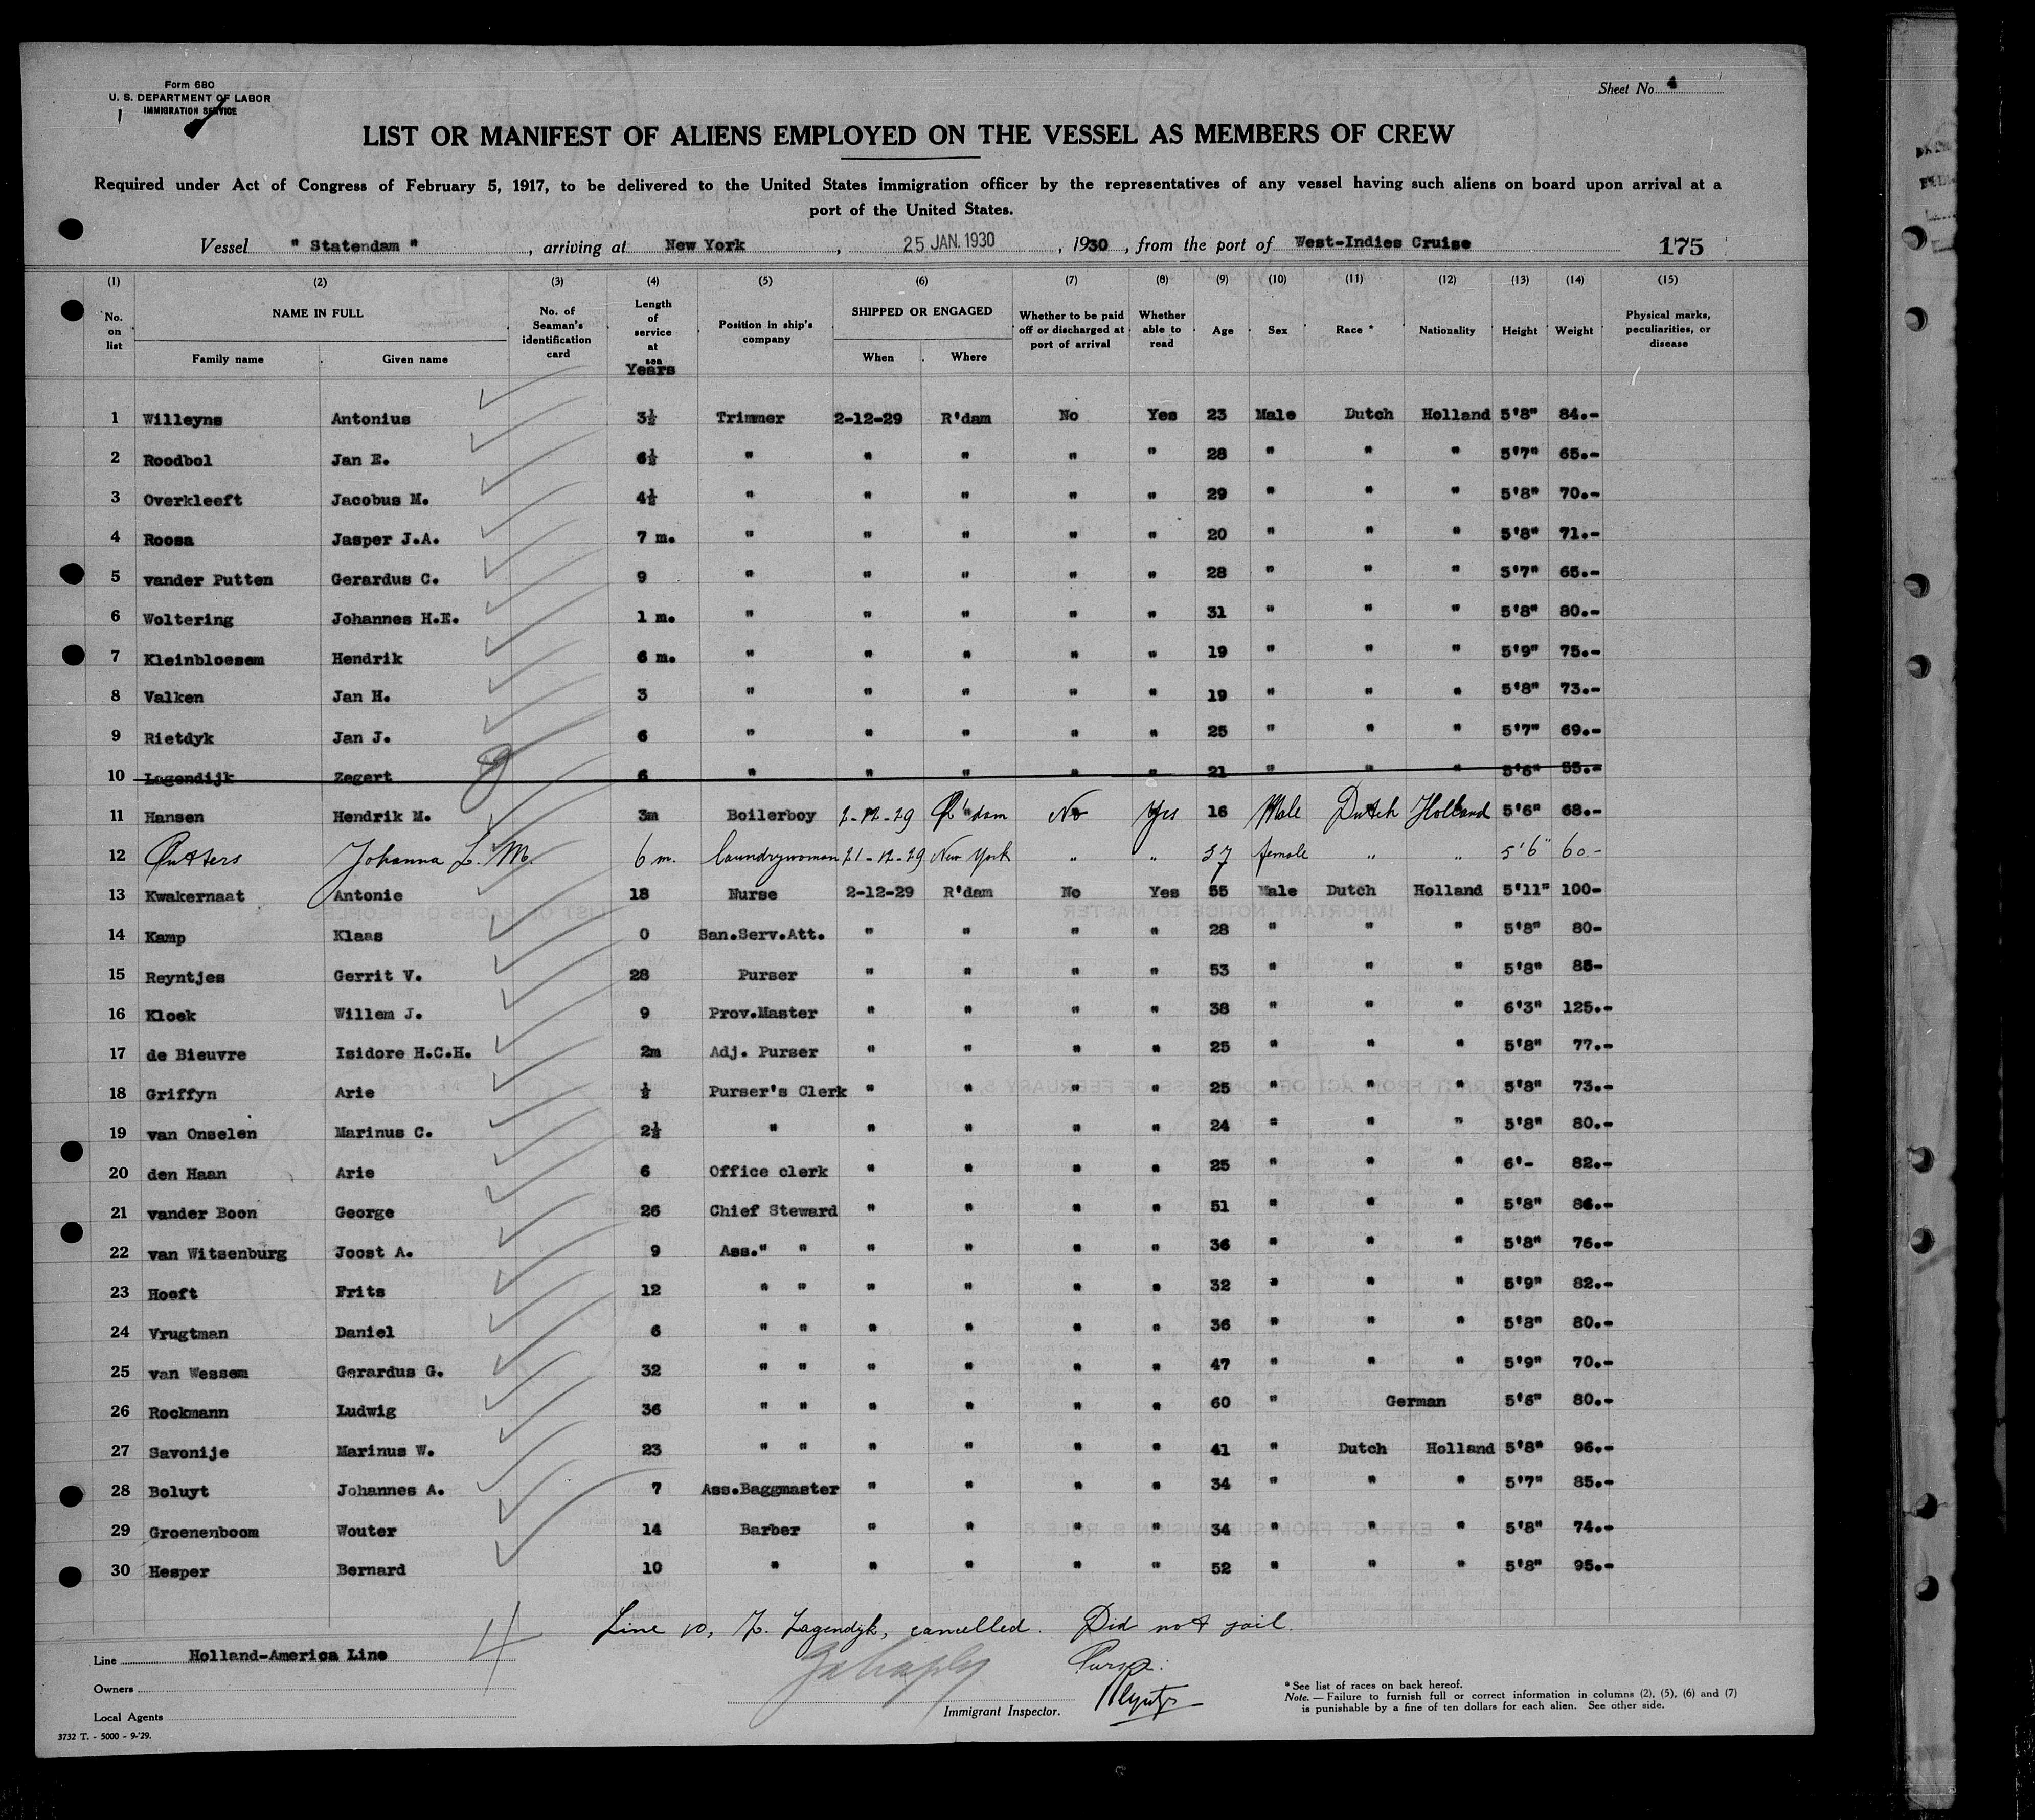 Form 680
U. S. DEPARTMENT OF LABOR
IMMIGRATION SERVICE
Sheet No. 4
LIST OR MANIFEST OF ALIENS EMPLOYED ON THE VESSEL AS MEMBERS OF CREW
Required under Act of Congress of February 5, 1917, to be delivered to the United States immigration officer by the representatives of any vessel having such aliens on board upon arrival at a
port of the United States.
Vessel " Statendam " , arriving at New York , 25 JAN. 1930 , 1930 , from the port of West-Indies Cruise 175
(1) (2) (3) (4) (5) (6) (7) (8) (9) (10) (11) (12) (13) (14) (15)
No. on list NAME IN FULL Family name Given name No. of Seaman's identification card Length of service at sea Years Position in ship's company SHIPPED OR ENGAGED When Where Whether to be paid off or discharged at port of arrival Whether able to read Age Sex Race * Nationality Height Weight Physical marks, peculiarities, or disease
1 Willeyns Antonius 3½ Trimmer 2-12-29 R'dam No Yes 23 Male Dutch Holland 5'8" 84.-
2 Roodbol Jan E. 6½ " " " " " 28 " " " 5'7" 65.-
3 Overkleeft Jacobus M. 4½ " " " " " 29 " " " 5'8" 70.-
4 Roosa Jasper J.A. 7 m. " " " " " 20 " " " 5'8" 71.-
5 vander Putten Gerardus C. 9 " " " " " 28 " " " 5'7" 65.-
6 Woltering Johannes H.E. 1 m. " " " " " 31 " " " 5'8" 80.-
7 Kleinbloesem Hendrik 6 m. " " " " " 19 " " " 5'9" 75.-
8 Valken Jan H. 3 " " " " " 19 " " " 5'8" 73.-
9 Rietdyk Jan J. 6 " " " " " 25 " " " 5'7" 69.-
10 Lagendijk Zegert 6 " " " " " 21 " " " 5'6" 55.-
11 Hansen Hendrik M. 3m Boilerboy 2-12-29 R'dam No Yes 16 Male Dutch Holland 5'6" 68.-
12 Rutters Johanna L. M. 6 m. laundrywoman 21-12-29 New York " " 37 female " " 5'6" 60-
13 Kwakernaat Antonie 18 Nurse 2-12-29 R'dam No Yes 55 Male Dutch Holland 5'11" 100-
14 Kamp Klaas 0 San.Serv.Att. " " " " 28 " " " 5'8" 80-
15 Reyntjes Gerrit V. 28 Purser " " " " 53 " " " 5'8" 85-
16 Kloek Willem J. 9 Prov.Master " " " " 38 " " " 6'3" 125.-
17 de Bieuvre Isidore H.C.H. 2m Adj. Purser " " " " 25 " " " 5'8" 77.-
18 Griffyn Arie ½ Purser's Clerk " " " " 25 " " " 5'8" 73.-
19 van Onselen Marinus C. 2½ " " " " " 24 " " " 5'8" 80.-
20 den Haan Arie 6 Office clerk " " " " 25 " " " 6'- 82.-
21 vander Boon George 26 Chief Steward " " " " 51 " " " 5'8" 86.-
22 van Witsenburg Joost A. 9 Ass." " " " " " 36 " " " 5'8" 76.-
23 Hooft Frits 12 " " " " " " 32 " " " 5'9" 82.-
24 Vrugtman Daniel 6 " " " " " " 36 " " " 5'8" 80.-
25 van Wessem Gerardus G. 32 " " " " " " 47 " " " 5'9" 70.-
26 Rockmann Ludwig 36 " " " " " " 60 " German 5'6" 80.-
27 Savonije Marinus W. 23 " " " " " " 41 " Dutch Holland 5'8" 96.-
28 Boluyt Johannes A. 7 Ass.Baggmaster " " " " 34 " " " 5'7" 85.-
29 Groenenboom Wouter 14 Barber " " " " 34 " " " 5'8" 74.-
30 Hesper Bernard 10 " " " " " 52 " " " 5'8" 95.-
Line 10, Z. Lagendijk, cancelled. Did not sail.
Purser:
Line Holland-America Line
Owners
Local Agents
Immigrant Inspector.
* See list of races on back hereof.
Note. — Failure to furnish full or correct information in columns (2), (5), (6) and (7)
is punishable by a fine of ten dollars for each alien. See other side.
3732 T. - 5000 - 9-'29.